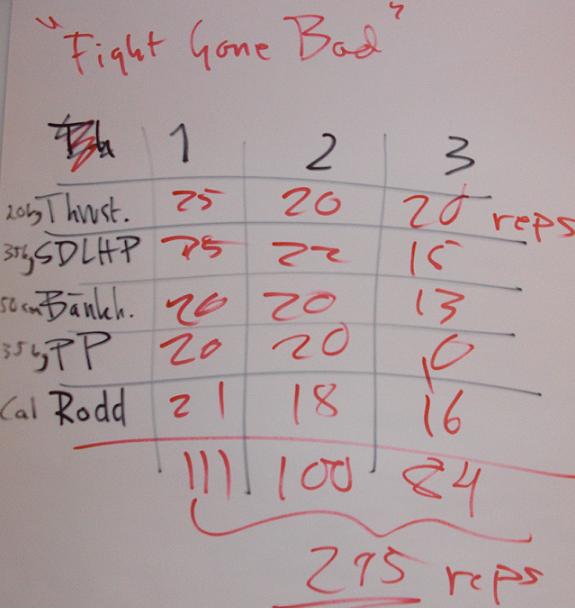 "Fight Gone Bad"
1 2 3
20kg Thrust. 25 20 20 reps
35kg SDLHP 25 22 15
50cm Bänkh. 20 20 13
35kg PP 20 20 10
Cal Rodd 21 18 16
111 100 84
295 reps